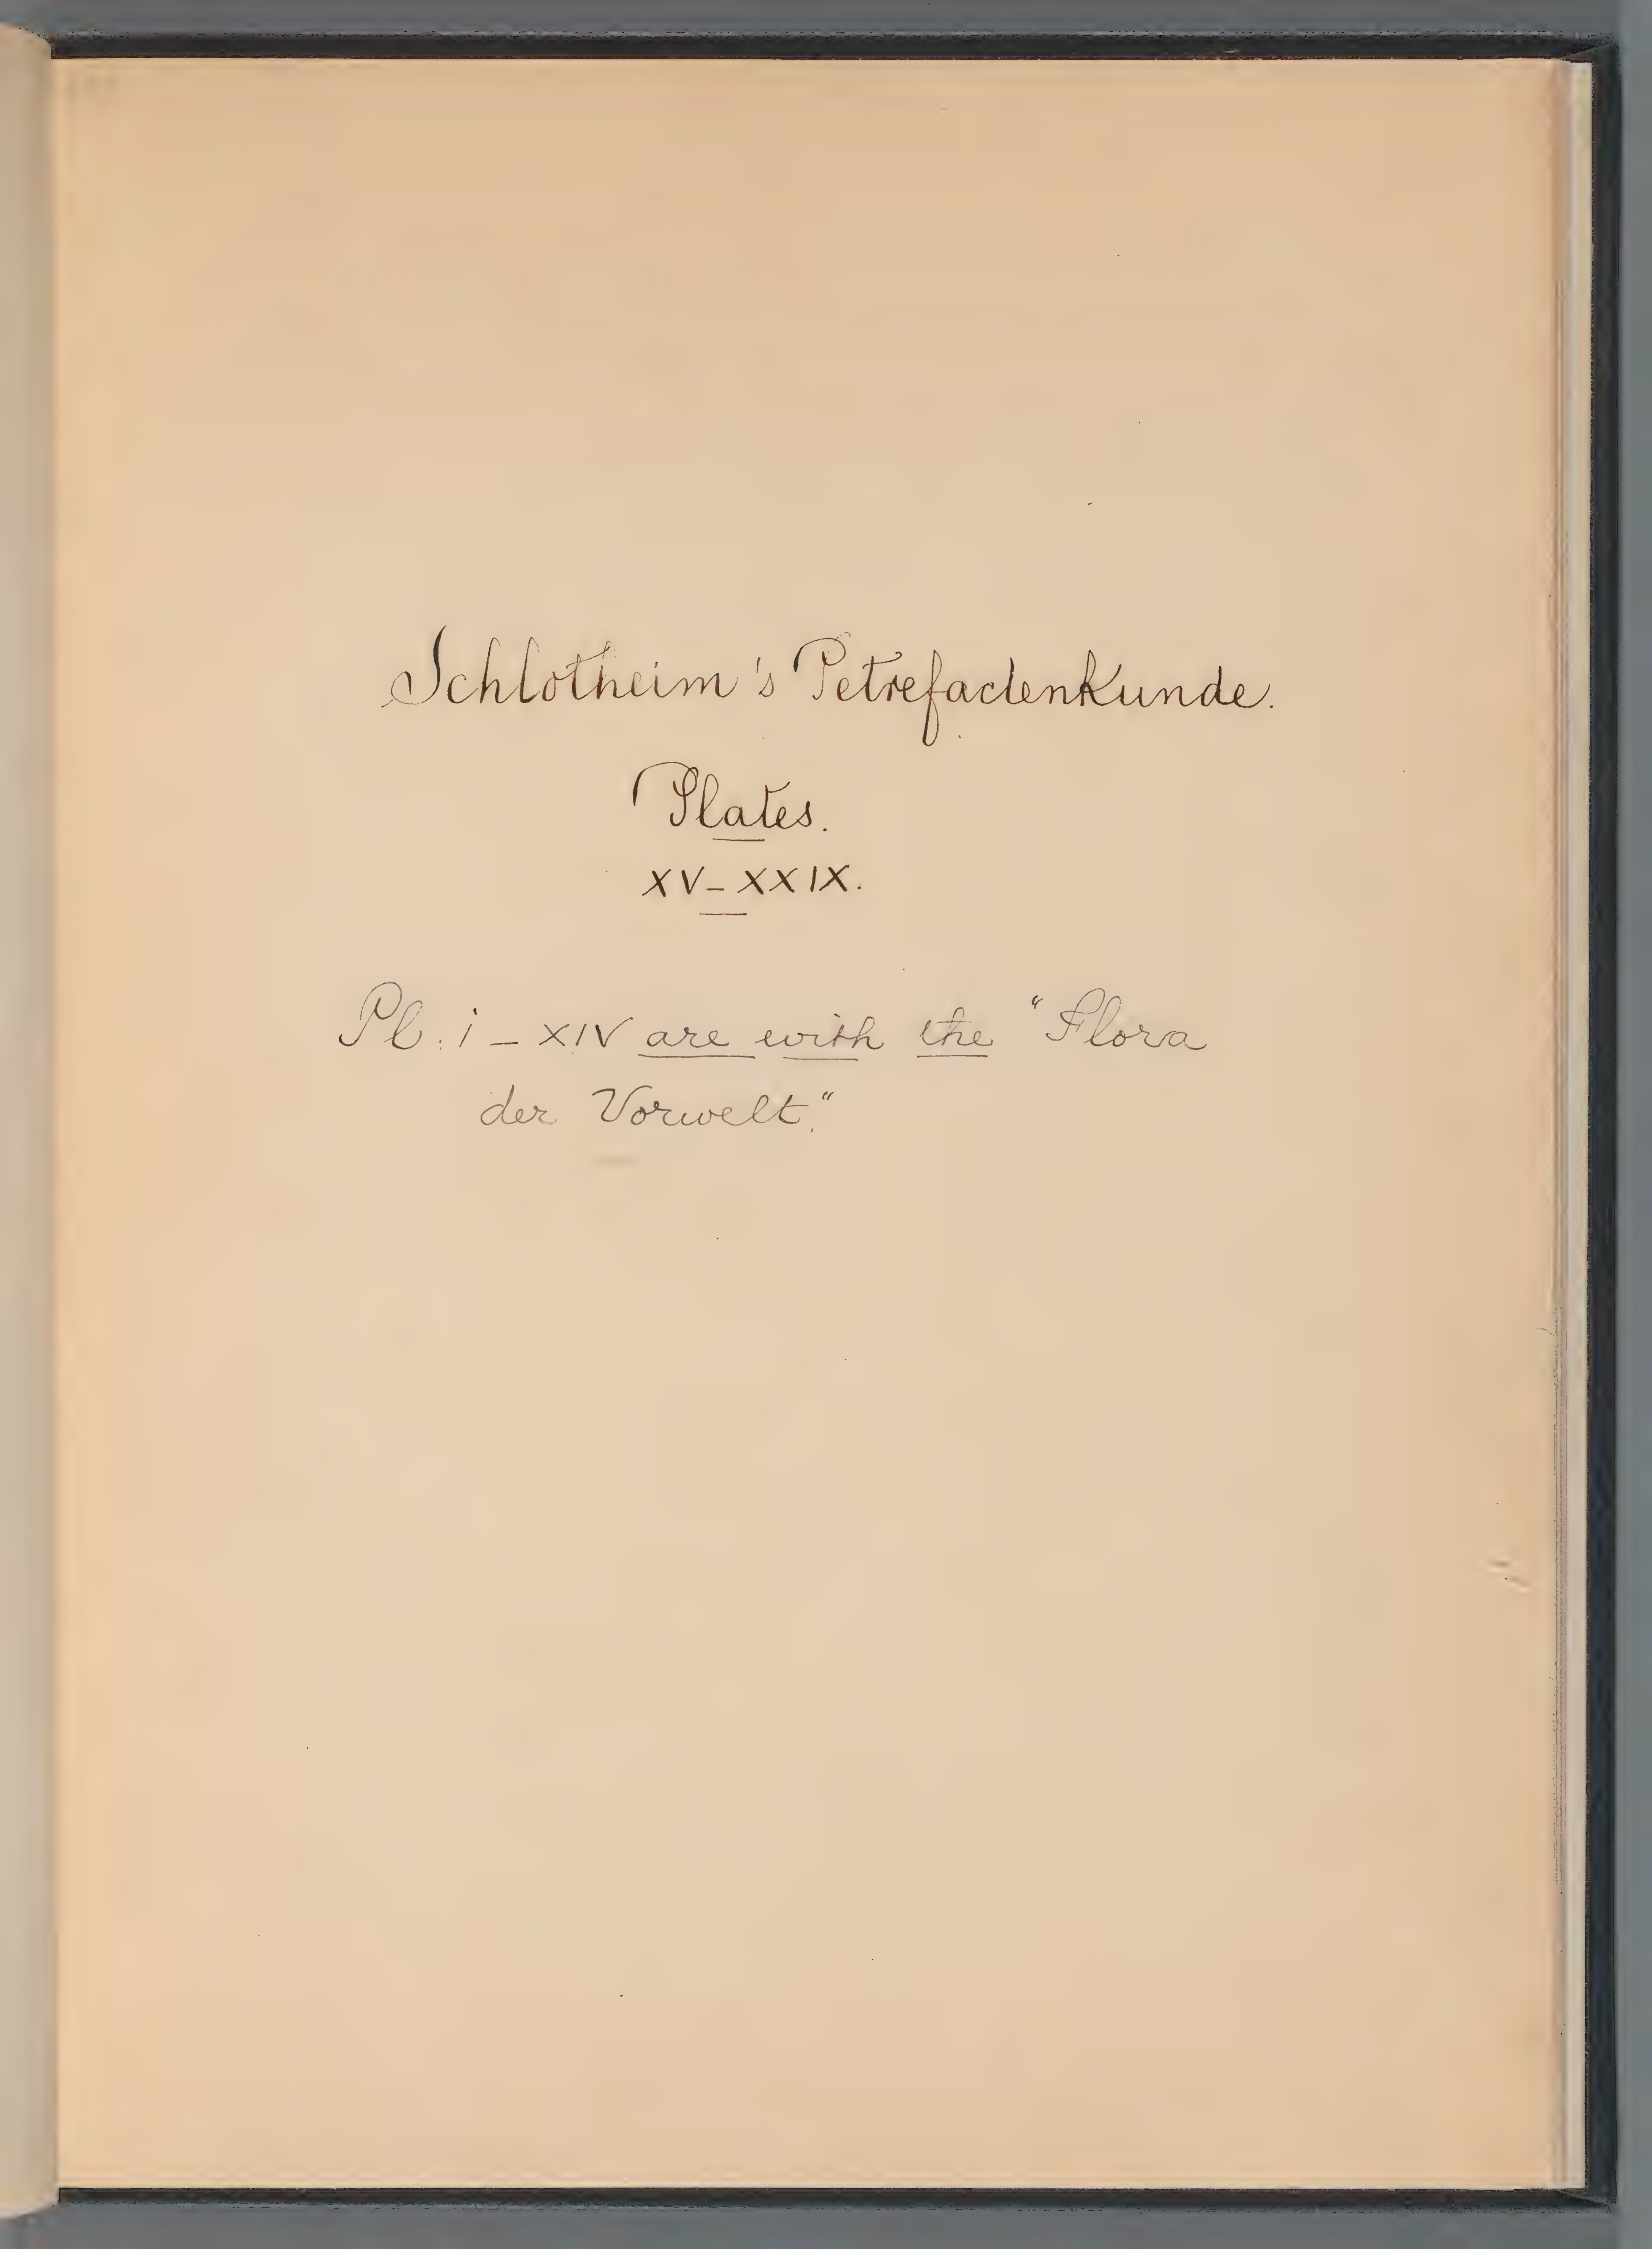 Schlotheim's Petrefactenkunde.
Plates.
XV – XXIX.
Pl. i – XIV are with the "Flora
der Vorwelt."